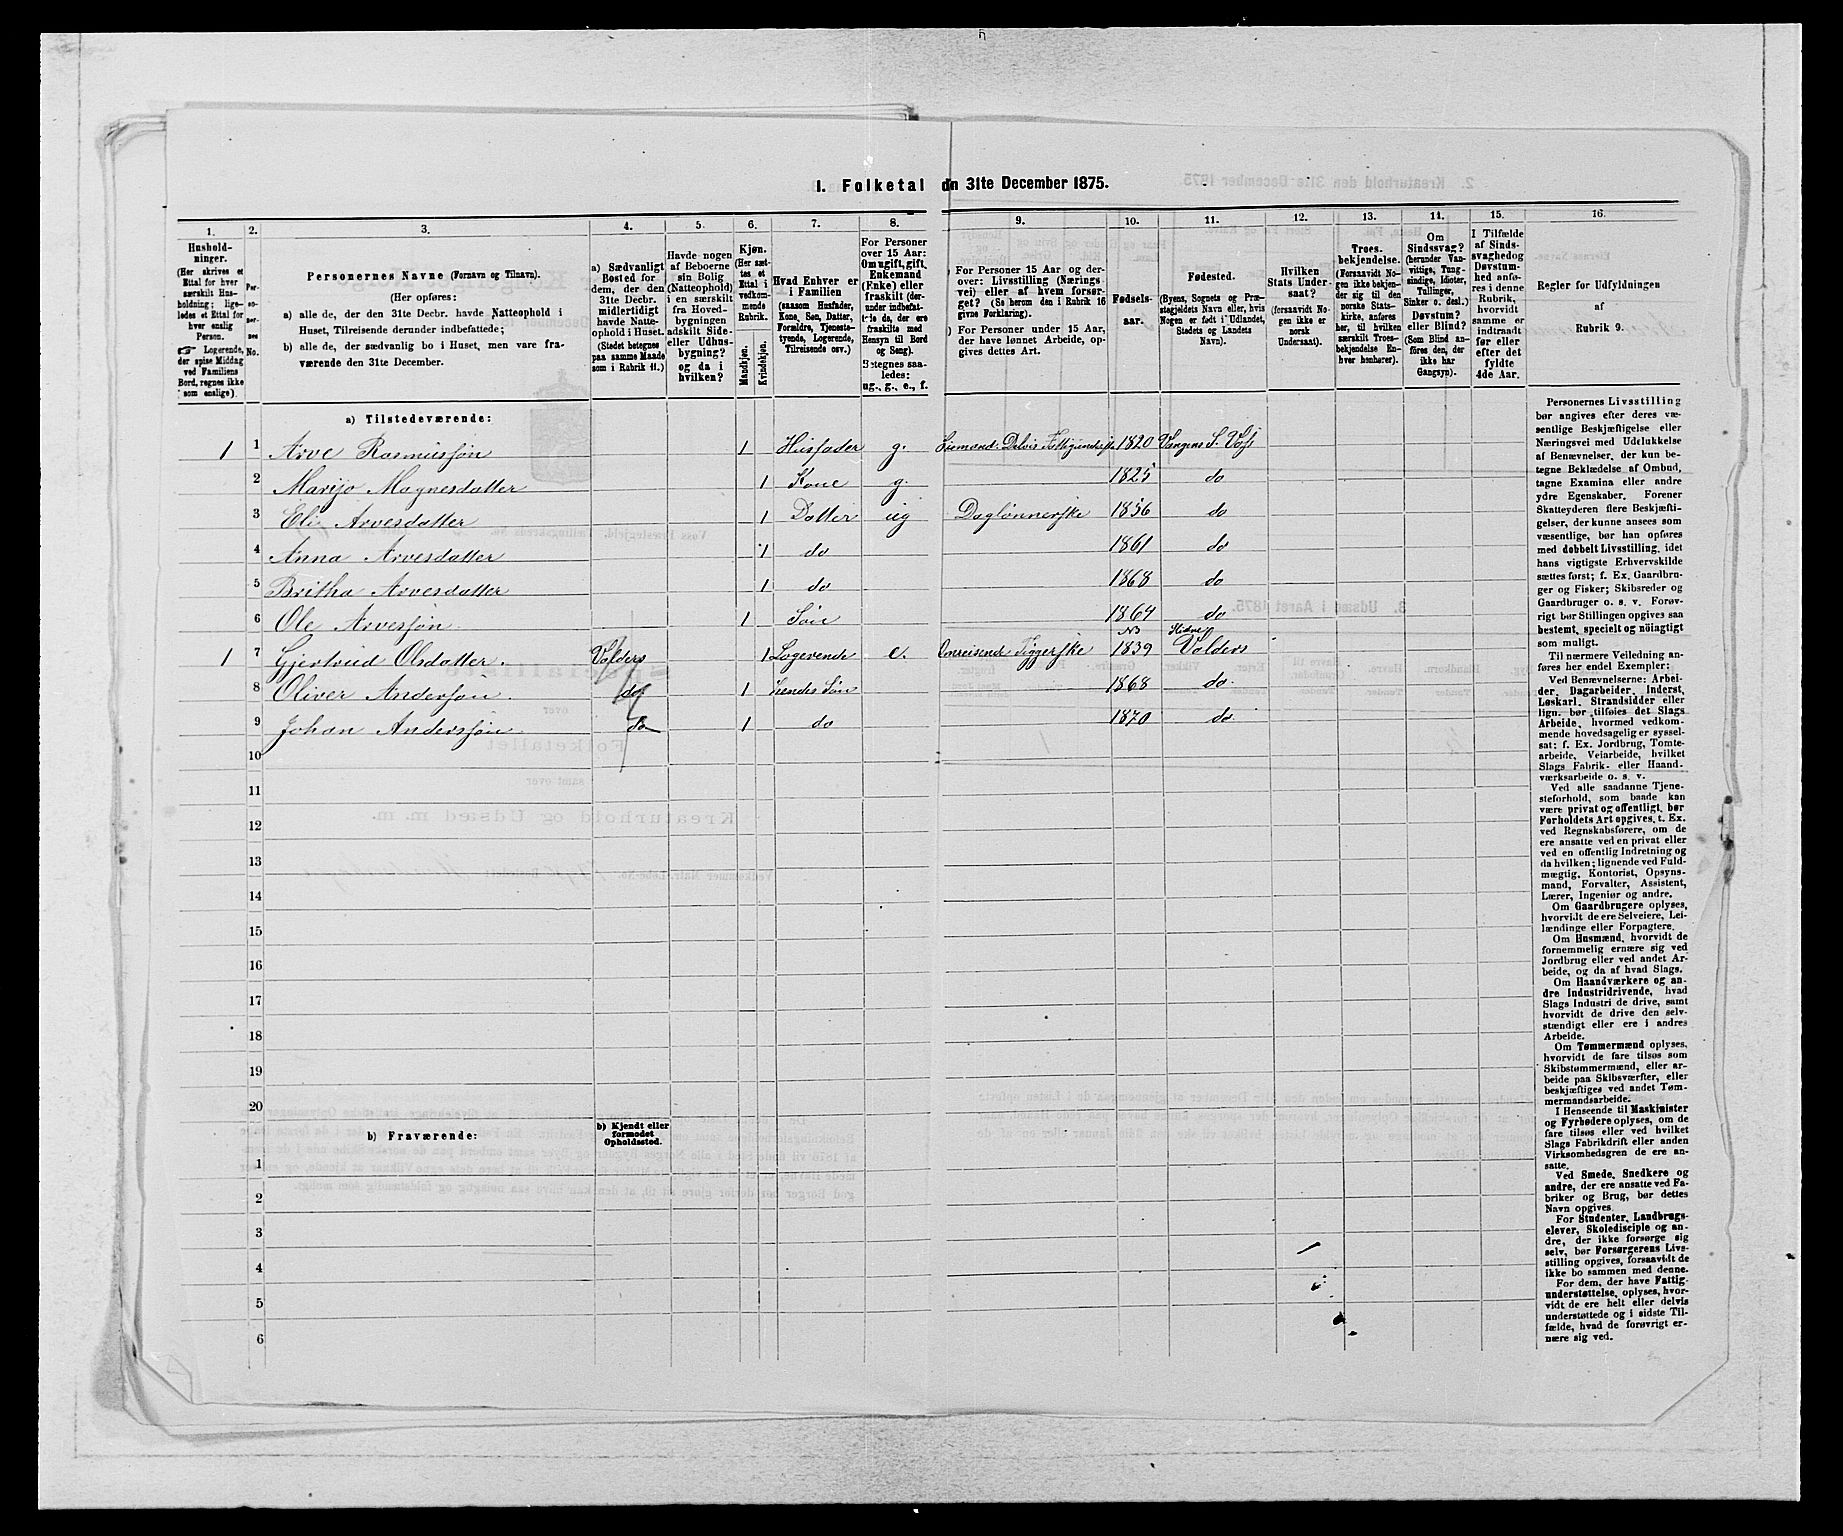 I. Folketal
dn 31te December 1875.
1.
2.
3.
4.
5.
6.
7.
8.
9.
10.
11.
12.
13.
14.
15.
16.
Hushold-
ninger.
(Her skrives et
Ettal for hver
særskilt Hus-
holdning; lige-
ledes et Ettal for
hver enslig
Person.
☞ Logerende,
der spise Middag
ved Familiens
Bord, regnes ikke
som enslige).
Per-
so-
ner-
nes
No.
Personernes Navne (Fornavn og Tilnavn).
(Her opføres:
a) alle de, der den 31te Decbr. havde Natteophold i
Huset, Tilreisende derunder indbefattede;
b) alle de, der sædvanlig bo i Huset, men vare fra-
værende den 31te December.
a) Sædvanligt
Bosted for
dem, der den
31te Decbr.
midlertidigt
havde Natte-
ophold i Huset.
(Stedet betegnes
paa samme Maade
som i Rubrik 11.)
Havde nogen
af Beboerne
sin Bolig
(Natteophold)
i en særskilt
fra Hoved-
bygningen
adskilt Side-
eller Udhus-
bygning?
og da i
hvilken?
Kjøn.
(Her sæt-
tes et
Ettal i
vedkom-
mende
Rubrik.
Mandkjøn.
Kvindekjøn.
Hvad Enhver er
i Familien
(saasom Husfader,
Kone, Søn, Datter,
Forældre, Tjeneste-
tyende, Logerende,
Tilreisende osv.)
For Personer
over 15 Aar:
Om ugift, gift,
Enkemand
(Enke) eller
fraskilt (der-
under indbefat-
te de, der ere
fraskilte med
Hensyn til Bord
og Seng).
Betegnes saa-
ledes:
ug., g., e., f.
) For Personer 15 Aar og der-
over: Livsstilling (Nærings-
vei) eller af hvem forsør-
get? (Se herom den i Rubrik 16
givne Forklaring).
) For Personer under 15 Aar,
der have lønnet Arbeide, op-
gives dettes Art.
Fødsels-
aar.
Fødested.
(Byens, Sognets og Præ-
stegjeldets Navn eller, hvis
Nogen er født i Udlandet,
Stedets og Landets
Navn).
Hvilken
Stats Under-
saat?
(forsaavidt No-
gen ikke er
norsk
Undersaat).
Troes-
bekjendelse.
(Forsaavidt No-
gen ikke bekjen-
der sig til den
norske Stats-
kirke, anføres
her, til hvilken
særskilt Troes-
bekjendelse En-
hver henhører).
Om
Sindssvag?
(herunder Van-
vittige, Tung-
sindige, Idioter,
Tullinger,
Sinker o. desl.)
Døvstum?
eller Blind?
(Som Blind an-
føres den, der
ikke har
Gangsyn).
I Tilfælde
af Sinds-
svaghed og
Døvstum-
hed anfø-
res i denne
Rubrik,
hvorvidt
samme er
indtraadt
før eller
efter det
fyldte
4de Aar.
Regler for Udfyldningen
af
Rubrik 9.
a) Tilstedeværende:
1 1 Arve Rasmussøn 1 Husfader g. Husmand. Delvis Fattigunderst. 1820 Vangens S. Voss
2 Marijo Magnesdatter 1 Kone g. 1825 do
3 Eli Arvesdatter 1 Datter ug Daglønnerske 1856 do
4 Anna Arvesdatter 1 do 1861 do
5 Britha Arvesdatter 1 do 1868 do
6 Ole Arvessøn 1 Søn 1864 do
1 7 Gjertrud Olsdatter. Valders 1 Logerende e. Omreisende Tiggerske 1839 Valders
8 Oliver Anderssøn do 1 Hendes Søn 1868 do.
9 Johan Anderssøn do 1 do 1870 do.
10
11
12
13
14
15
16
17
18
19
20
b) Fraværende:
b) Kjendt eller
formodet
Opholdssted.
1
2
3
4
5
6
Personernes Livsstilling
bør angives efter deres væ-
sentlige Beskjæftigelse eller
Næringsvei med Udelukkelse
af Benævnelser, der kun be-
tegne Beklædelse af Ombud,
tagne Examina eller andre
ydre Egenskaber. Forener
Skatteyderen flere Beskjæfti-
gelser, der kunne ansees som
væsentlige, bør han opføres
med dobbelt Livsstilling, idet
hans vigtigste Erhvervskilde
sættes først; f. Ex. Gaardbru-
ger og Fisker; Skibsreder og
Gaardbruger o. s. v. Forøv-
rigt bør Stillingen opgives saa
bestemt, specielt og nöiagtigt
som muligt.
Til nærmere Veiledning an-
føres her endel Exempler:
Ved Benævnelserne: Arbei-
der, Dagarbeider, Inderst,
Løskarl, Strandsidder eller
lign. bør tilføies det Slags
Arbeide, hvormed vedkom-
mende hovedsagelig er syssel-
sat; f. Ex. Jordbrug, Tomte-
arbeide, Veiarbeide, hvilket
Slags Fabrik- eller Haand-
værksarbeide o. s. v.
Ved alle saadanne Tjene-
steforhold, som baade kan
være privat og offentligt, bør
Forholdets Art opgives, t. Ex.
ved Regnskabsførere, om de
ere ansatte ved en privat eller
ved en offentlig Indretning og
da hvilken; lignende ved Fuld-
mægtig, Kontorist, Opsyns-
mand, Forvalter, Assistent,
Lærer, Ingeniør og andre.
Om Gaardbrugere oplyses,
hvorvidt de ere Selveiere, Lei-
lændinge eller Forpagtere.
Om Husmænd, hvorvidt de
fornemmelig ernære sig ved
Jordbrug eller ved andet Ar-
beide, og da af hvad Slags.
Om Haandværkere og an-
dre Industridrivende, hvad
Slags Industri de drive, samt
hvorvidt de drive den selv-
stændigt eller ere i andres
Arbeide.
Om Tømmermænd oplyses,
hvorvidt de fare tilsøs som
Skibstømmermænd, eller ar-
beide paa Skibsværfter, eller
beskjæftiges ved andet Tøm-
mermandsarbeide.
I Henseende til Maskinister
og Fyrbødere oplyses, om de
fare tilsøs eller ved hvilket
Slags Fabrikdrift eller anden
Virksomhedsgren de ere an-
satte.
Ved Smede, Snedkere og
andre, der ere ansatte ved Fa-
briker og Brug, bør dettes
Navn opgives.
For Studenter, Landbrugs-
elever, Skoledisciple og an-
dre, der ikke forsørge sig
selv, bør Forsørgerens Livs-
stilling opgives, forsaavidt de
ikke bo sammen med denne.
For dem, der have Fattig-
understøttelse, oplyses, hvor-
vidt de ere helt eller delvis
understøttede og i sidste Til-
fælde, hvad de forøvrigt er-
nære sig ved.